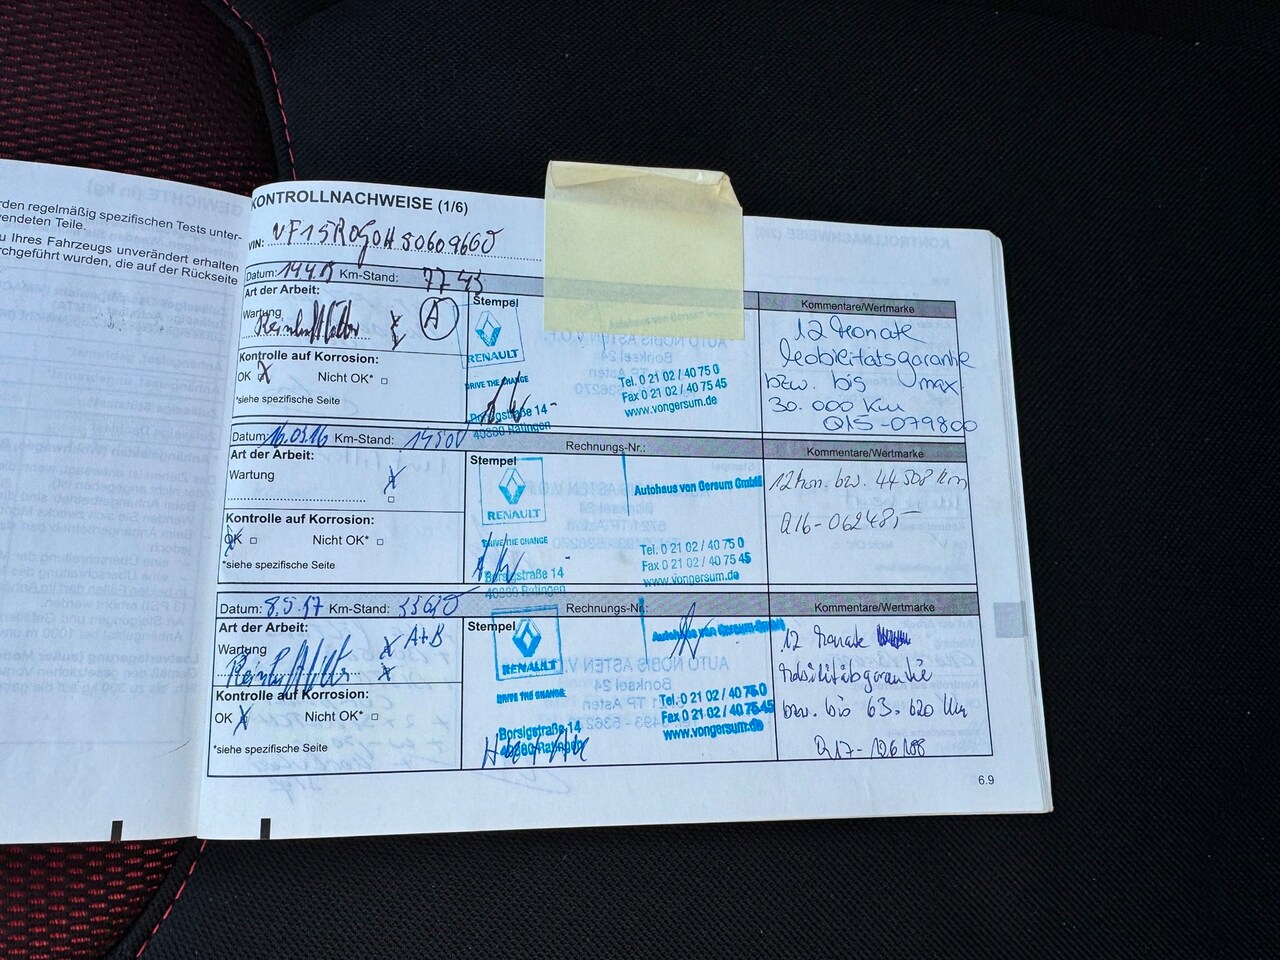 rden regelmäßig spezifischen Tests unter-
endeten Teile.
u Ihres Fahrzeugs unverändert erhalten
rchgeführt wurden, die auf der Rückseite
KONTROLLNACHWEISE (1/6)
VIN: VF15R0G0H50609660
Datum: Km-Stand: 7745
Art der Arbeit:
Wartung
A
Kontrolle auf Korrosion:
OK X Nicht OK* □
*siehe spezifische Seite
Stempel
RENAULT
DRIVE THE CHANGE
Borsigstraße 14
40880 Ratingen
Tel. 0 21 02 / 40 75 0
Fax 0 21 02 / 40 75 45
www.vongersum.de
Kommentare/Wertmarke
12 Monate
Mobilitätsgarantie
bzw. bis max
30.000 Km
Q15-079800
Datum: 16.03.16 Km-Stand: Rechnungs-Nr.:
Art der Arbeit:
Wartung X
□
Kontrolle auf Korrosion:
OK □ Nicht OK* □
*siehe spezifische Seite
Stempel
RENAULT
DRIVE THE CHANGE
Borsigstraße 14
40880 Ratingen
Autohaus von Gersum GmbH
Tel. 0 21 02 / 40 75 0
Fax 0 21 02 / 40 75 45
www.vongersum.de
Kommentare/Wertmarke
12 Mon. bzw. 44508 Km
Datum: 8.5.17 Km-Stand: 33620 Rechnungs-Nr.:
Art der Arbeit:
Wartung X A+B
X
Kontrolle auf Korrosion:
OK X Nicht OK* □
*siehe spezifische Seite
Stempel
RENAULT
DRIVE THE CHANGE
Borsigstraße 14
40880 Ratingen
Autohaus von Gersum GmbH
Tel. 0 21 02 / 40 75 0
Fax 0 21 02 / 40 75 45
www.vongersum.de
Kommentare/Wertmarke
12 Monate
Mobilitätsgarantie
bzw. bis 63.620 Km
Q17-126188
6.9